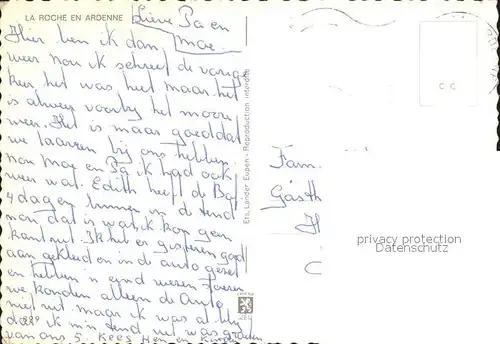 LA ROCHE EN ARDENNE
Lieve Pa en
moe.
Hier ben ik dan
weer nou ik schreef de vorige
keer het was heet maar het
is alweer voorby het mooie
weer. Het is maar goed dat
we laarzen bij ons hebben.
nou moe en Pa ik had ook
weer wat. Edith heeft de Baf
4 dagen binnen in de tend
nou dat is wat, ik kon geen
kant uit. Ik heb er gisteren goed
aan gekleed en in de auto gezet
en hebben n eind wezen toeren
we konden alleen de Auto
niet uit maar ik was al bly
dat ik m'n tend uit was groeten
van ons 5. Kees Hen en
Ets. Lander Eupen - Reproduction interdite
Fam.
Gasth
H
C
CC
privacy protection
Datenschutz